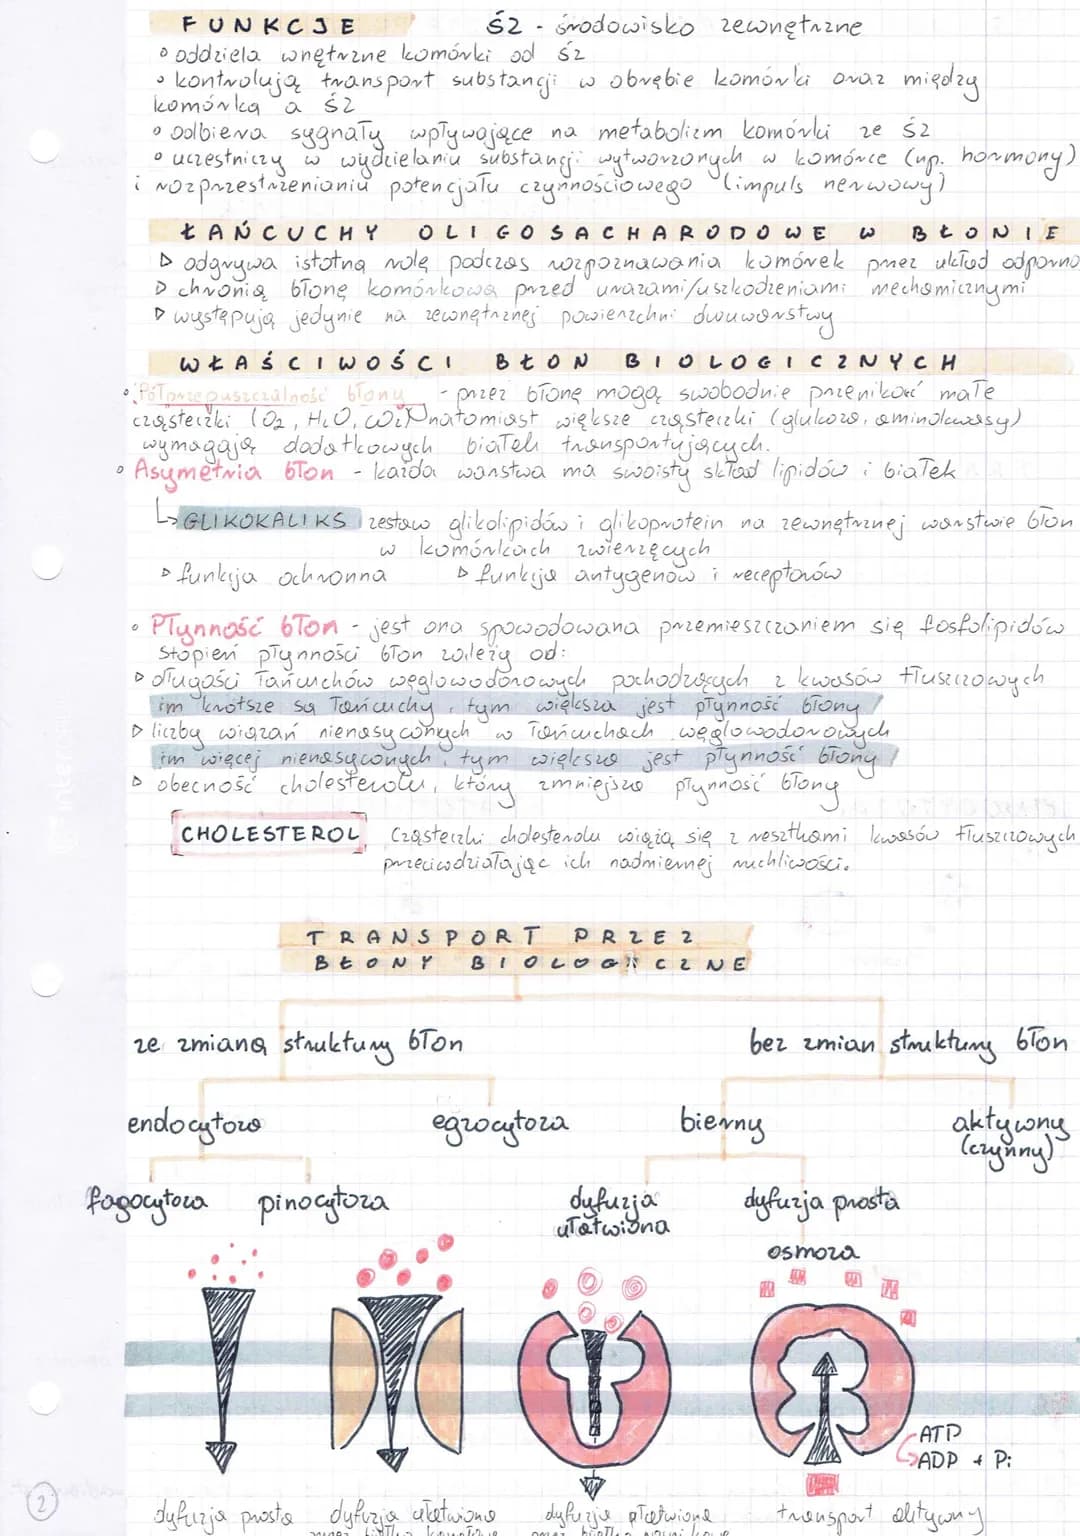 FUNKCJE ŚZ - środowisko zewnętrzne
• oddziela wnętrzne komórki od ŚZ
• kontrolują transport substancji w obrębie komórki oraz między
komórką a ŚZ
• odbiera sygnały wpływające na metabolizm komórki ze ŚZ
• uczestniczy w wydzielaniu substancji wytworzonych w komórce (np. hormony)
i rozprzestrzenianiu potencjału czynnościowego (impuls nerwowy)
ŁAŃCUCHY OLIGOSACHARODOWE W BŁONIE
▷ odgrywa istotną rolę podczas rozpoznawania komórek przez układ odporno
▷ chronią błonę komórkową przed urazami/uszkodzeniami mechanicznymi
▷ występują jedynie na zewnętrznej powierzchni dwuwarstwy
WŁAŚCIWOŚCI BŁON BIOLOGICZNYCH
• Półprzepuszczalność błony - przez błonę mogą swobodnie przenikać małe
cząsteczki (O2, H2O, CO2) natomiast większe cząsteczki (glukoza, aminokwasy)
wymagają dodatkowych białek transportujących.
• Asymetria błon - każda warstwa ma swoisty skład lipidów i białek
↳ GLIKOKALIKS zestaw glikolipidów i glikoprotein na zewnętrznej warstwie błon
w komórkach zwierzęcych
▷ funkcja ochronna ▷ funkcja antygenów i receptorów
• Płynność błon - jest ona spowodowana przemieszczaniem się fosfolipidów
Stopień płynności błon zależy od:
▷ długości łańcuchów węglowodorowych pochodzących z kwasów tłuszczowych
im krótsze są łańcuchy, tym większa jest płynność błony
▷ liczby wiązań nienasyconych w łańcuchach węglowodorowych
im więcej nienasyconych, tym większa jest płynność błony
▷ obecność cholesterolu, który zmniejsza płynność błony
CHOLESTEROL Cząsteczki cholesterolu wiążą się z resztkami kwasów tłuszczowych
przeciwdziałając ich nadmiernej ruchliwości.
TRANSPORT PRZEZ
BŁONY BIOLOGICZNE
ze zmianą struktury błon bez zmian struktury błon
endocytoza egzocytoza bierny aktywny
(czynny)
fagocytoza pinocytoza dyfuzja
ułatwiona dyfuzja prosta
osmoza
ATP
ADP + Pi
2
dyfuzja prosta dyfuzja ułatwiona dyfuzja ułatwiona transport aktywny